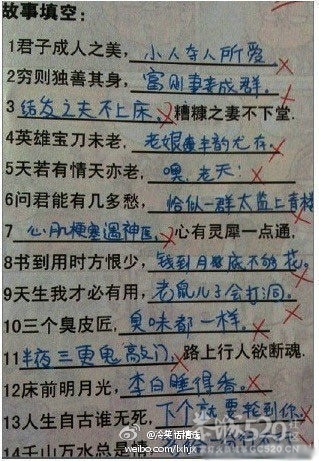 故事填空：
1君子成人之美，小人夺人所爱。
2穷则独善其身，富则妻妾成群。
3结发之夫不上床，糟糠之妻不下堂.
4英雄宝刀未老，老娘丰韵尤存。
5天若有情天亦老，噢，老天！
6问君能有几多愁，恰似一群太监上青楼
7心肌梗塞遇神医，心有灵犀一点通，
8书到用时方恨少，钱到月底不够花。
9天生我才必有用，老鼠儿子会打洞。
10三个臭皮匠，臭味都一样。
11半夜三更鬼敲门，路上行人欲断魂.
12床前明月光，李白睡得香。
13人生自古谁无死，下个就要轮到你
14千山万水总是
@冷笑话精选
weibo.com/lxhjx
520